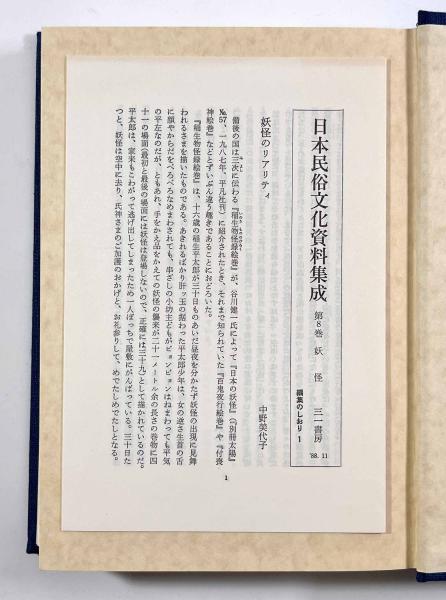 日本民俗文化資料集成 第8巻 妖怪 三一書房
'88. 11
編集のしおり 1
妖怪のリアリティ
中野美代子
備後の国は三次に伝わる『稲生物怪録絵巻』が、谷川健一氏によって『日本の妖怪』（『別冊太陽』
№57、一九八七年、平凡社刊）に紹介されたとき、それまで知られていた『百鬼夜行絵巻』や『付喪
神絵巻』などとずいぶん違う趣きであることにおどろいた。
『稲生物怪録絵巻』は、十六歳の稲生平太郎が三十日ものあいだ昼夜を分かたず妖怪の出現に見舞
われるさまを描いたものである。あきれるばかり肝ッ玉の据わった平太郎少年は、女の逆さ生首の舌
に顔やからだをべろべろなめまわされても、串ざしの小坊主どもがピョンピョンはねまわっても平気
の平左なのだが、ともあれ、手をかえ品をかえての妖怪の襲来が二十一メートル余の長さの巻物に四
十一の場面（最初と最後の場面には妖怪は登場しないので、正確には三十九）として描かれているのだ。
平太郎は、家来もこわがって逃げ出してしまったため一人ぼっちで屋敷にがんばっている。三十日た
つと、妖怪は空中に去り、氏神さまのご加護のおかげと、お礼参りして、めでたしめでたしとなる。
1